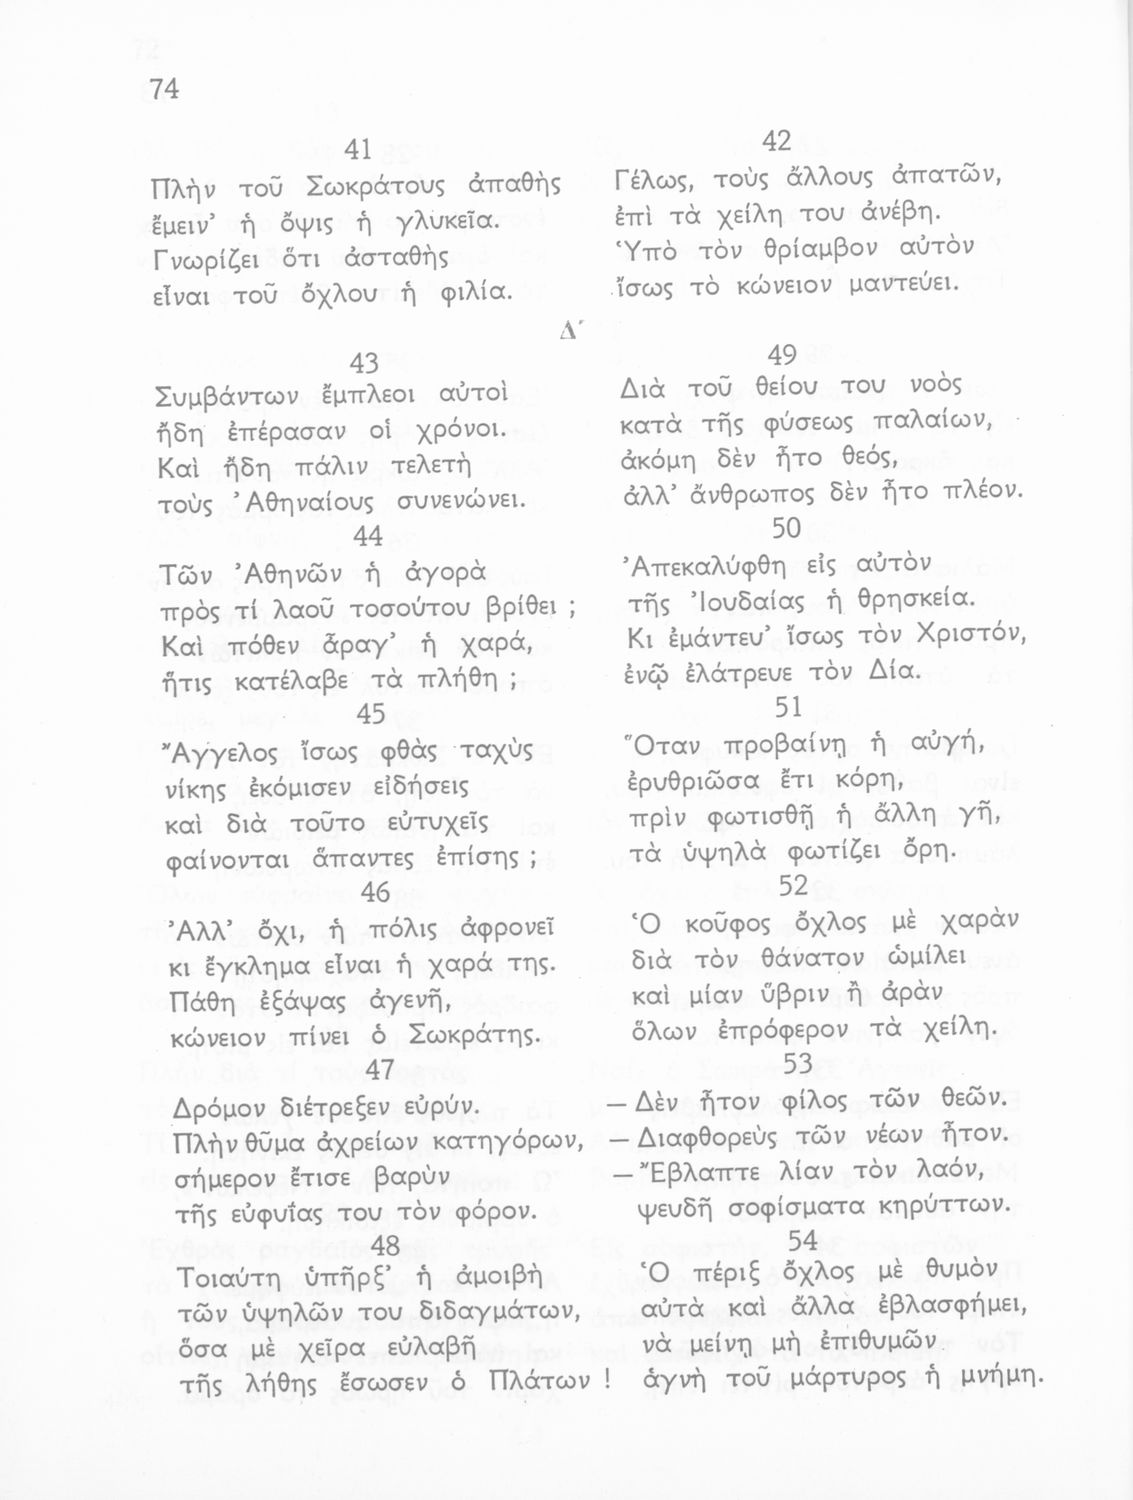 74
41
Πλὴν τοῦ Σωκράτους ἀπαθὴς
ἔμειν’ ἡ ὄψις ἡ γλυκεῖα.
Γνωρίζει ὅτι ἀσταθὴς
εἶναι τοῦ ὄχλου ἡ φιλία.
42
Γέλως, τοὺς ἄλλους ἀπατῶν,
ἐπὶ τὰ χείλη του ἀνέβη.
Ὑπὸ τὸν θρίαμβον αὐτὸν
ἴσως τὸ κώνειον μαντεύει.
Δ΄
43
Συμβάντων ἔμπλεοι αὐτοὶ
ἤδη ἐπέρασαν οἱ χρόνοι.
Καὶ ἤδη πάλιν τελετὴ
τοὺς Ἀθηναίους συνενώνει.
44
Τῶν Ἀθηνῶν ἡ ἀγορὰ
πρὸς τί λαοῦ τοσούτου βρίθει ;
Καὶ πόθεν ἆραγ’ ἡ χαρά,
ἥτις κατέλαβε τὰ πλήθη ;
45
Ἄγγελος ἴσως φθὰς ταχὺς
νίκης ἐκόμισεν εἰδήσεις
καὶ διὰ τοῦτο εὐτυχεῖς
φαίνονται ἅπαντες ἐπίσης ;
46
Ἀλλ’ ὄχι, ἡ πόλις ἀφρονεῖ
κι ἔγκλημα εἶναι ἡ χαρά της.
Πάθη ἐξάψας ἀγενῆ,
κώνειον πίνει ὁ Σωκράτης.
47
Δρόμον διέτρεξεν εὐρύν.
Πλὴν θῦμα ἀχρείων κατηγόρων,
σήμερον ἔτισε βαρὺν
τῆς εὐφυΐας του τὸν φόρον.
48
Τοιαύτη ὑπῆρξ’ ἡ ἀμοιβὴ
τῶν ὑψηλῶν του διδαγμάτων,
ὅσα μὲ χεῖρα εὐλαβῆ
τῆς λήθης ἔσωσεν ὁ Πλάτων !
49
Διὰ τοῦ θείου του νοὸς
κατὰ τῆς φύσεως παλαίων,
ἀκόμη δὲν ἦτο θεός,
ἀλλ’ ἄνθρωπος δὲν ἦτο πλέον.
50
Ἀπεκαλύφθη εἰς αὐτὸν
τῆς Ἰουδαίας ἡ θρησκεία.
Κι ἐμάντευ’ ἴσως τὸν Χριστόν,
ἐνῷ ἐλάτρευε τὸν Δία.
51
Ὅταν προβαίνῃ ἡ αὐγή,
ἐρυθριῶσα ἔτι κόρη,
πρὶν φωτισθῇ ἡ ἄλλη γῆ,
τὰ ὑψηλὰ φωτίζει ὄρη.
52
Ὁ κοῦφος ὄχλος μὲ χαρὰν
διὰ τὸν θάνατον ὡμίλει
καὶ μίαν ὕβριν ἢ ἀρὰν
ὅλων ἐπρόφερον τὰ χείλη.
53
— Δὲν ἦτον φίλος τῶν θεῶν.
— Διαφθορεὺς τῶν νέων ἦτον.
— Ἔβλαπτε λίαν τὸν λαόν,
ψευδῆ σοφίσματα κηρύττων.
54
Ὁ πέριξ ὄχλος μὲ θυμὸν
αὐτὰ καὶ ἄλλα ἐβλασφήμει,
νὰ μείνῃ μὴ ἐπιθυμῶν
ἁγνὴ τοῦ μάρτυρος ἡ μνήμη.